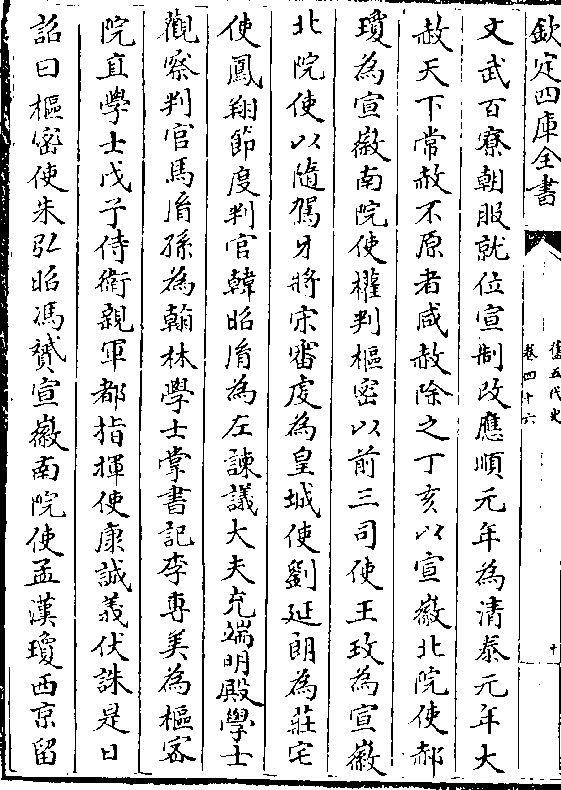 欽定四庫全書
舊五代史
卷四十六
十
文武百寮朝服就位宣制改應順元年為清泰元年大
赦天下常赦不原者咸赦除之丁亥以宣徽北院使郝
瓊為宣徽南院使權判樞密以前三司使王玫為宣徽
北院使以隨駕牙將宋審虔為皇城使劉延朗為莊宅
使鳳翔節度判官韓昭胤為左諫議大夫充端明殿學士
觀察判官馬胤孫為翰林學士掌書記李專美為樞宻
院直學士戊子侍衛親軍都指揮使康誠義伏誅是日
詔曰樞密使朱弘昭馮贇宣徽南院使孟漢瓊西京留